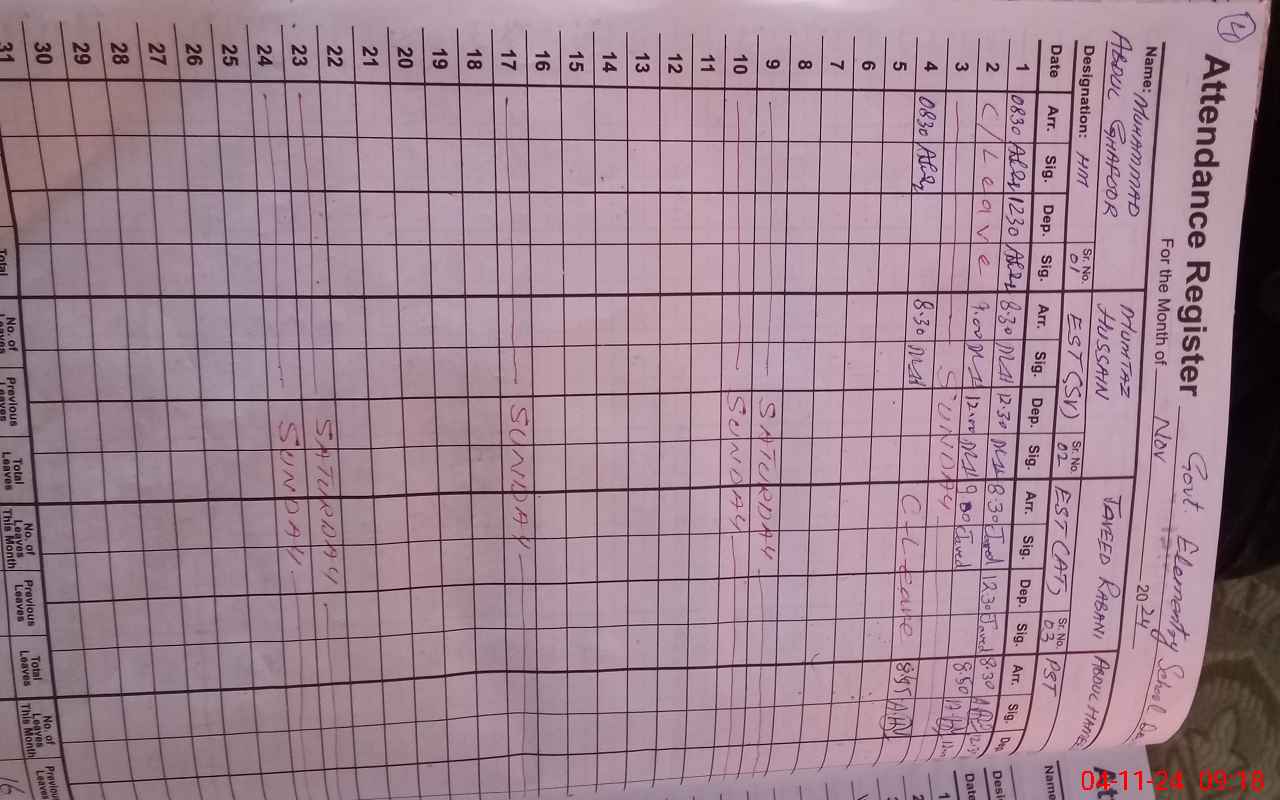 4
Attendance Register Govt. Elementry School
For the Month of Nov 2024
Name: MUHAMMAD ABDUL GHAFOOR MUMTAZ HUSSAN JAVEED RABANI ABDUL HAMEE
Designation: HM Sr. No. 01 EST(SV) Sr. No. 02 EST(AT) Sr. No. 03 PST
Date Arr. Sig. Dep. Sig. Arr. Sig. Dep. Sig. Arr. Sig. Dep. Sig. Arr. Sig.
1 0830 1230 8:30 12:30 8:30 Javed 1230 Javed 8:30
2 C/Leave 9:00 12:00 9:00 Javed 8:50
3 SUNDAY
4 0830 8:30 C-Leave 855
5
6
7
8
9 SATURDAY
10 SUNDAY
11
12
13
14
15
16
17 SUNDAY
18
19
20
21
22
23 SATURDAY
24 SUNDAY
25
26
27
28
29
30
31
Total No. of Leaves Previous Leaves Total Leaves No. of Leaves This Month Previous Leaves Total Leaves No. of Leaves This Month Previous Leaves
16
Name
Date
1
2
04-11-24 09:18